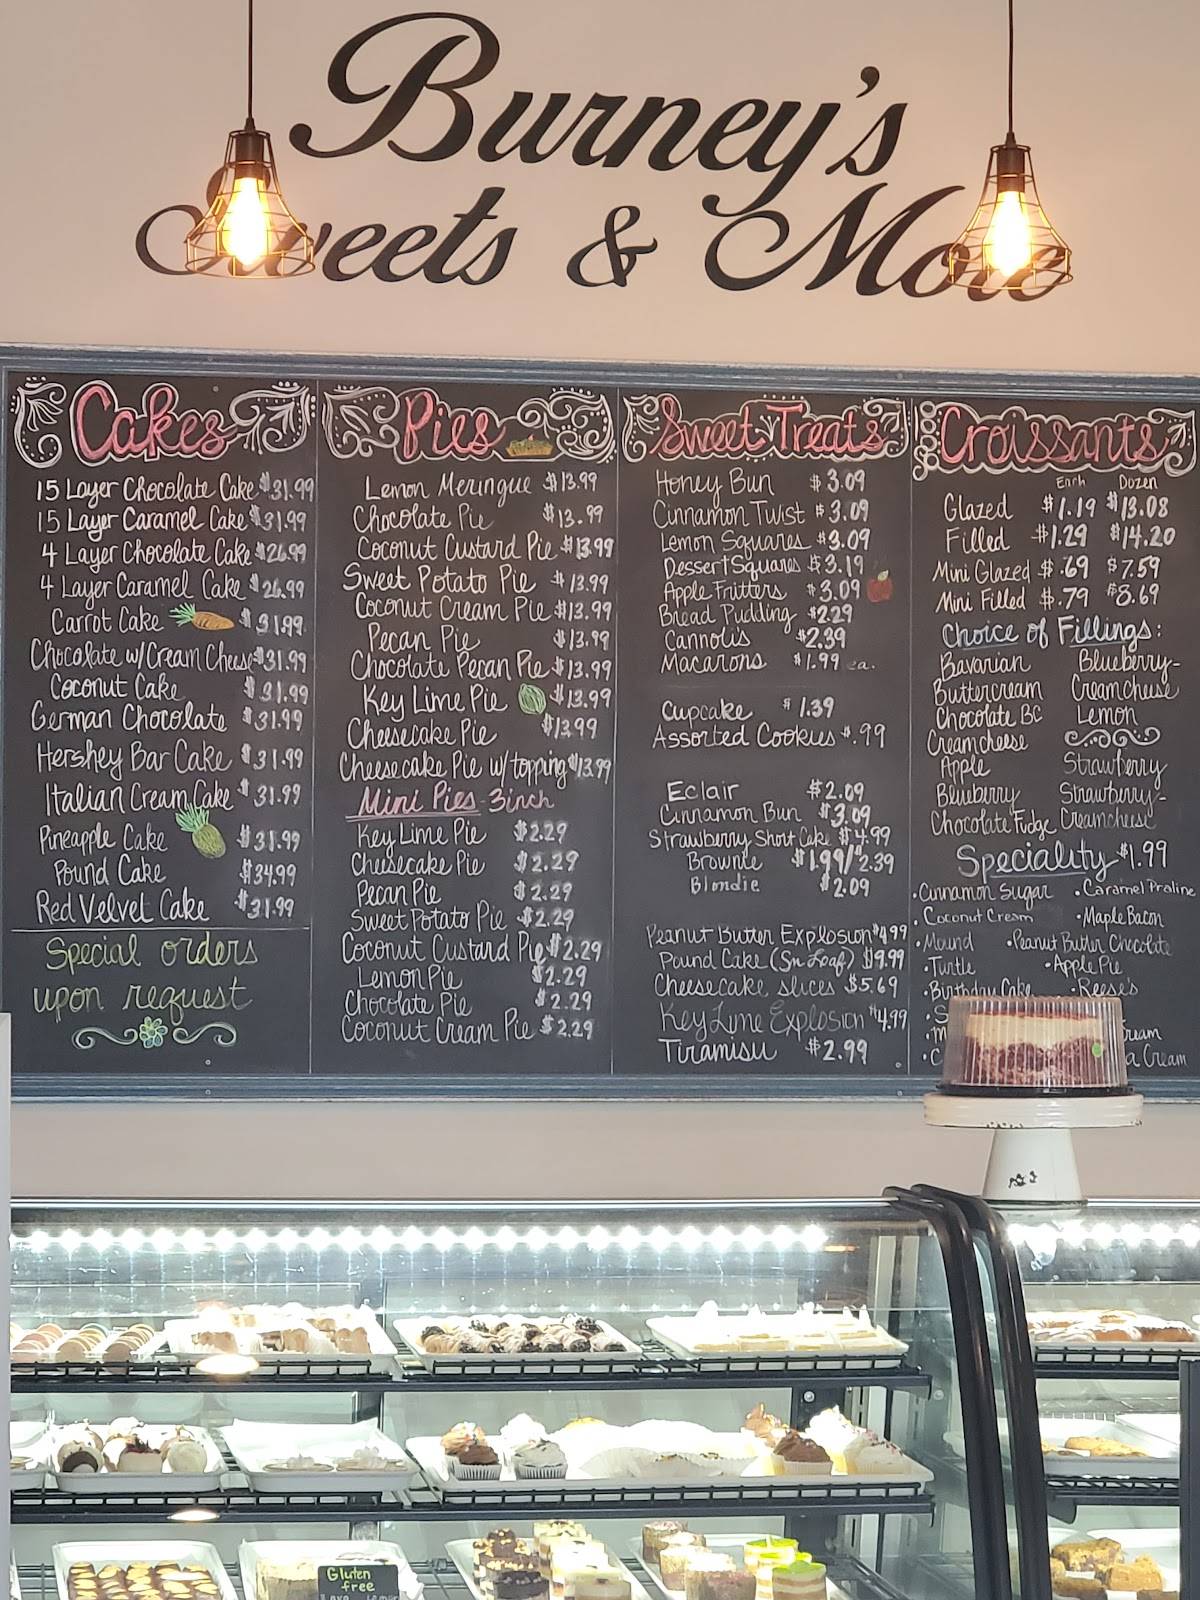 Burney's
Sweets & More
Cakes
15 Layer Chocolate Cake $31.99
15 Layer Caramel Cake $31.99
4 Layer Chocolate Cake $26.99
4 Layer Caramel Cake $26.99
Carrot Cake $31.99
Chocolate w/Cream Cheese $31.99
Coconut Cake $31.99
German Chocolate $31.99
Hershey Bar Cake $31.99
Italian Cream Cake $31.99
Pineapple Cake $31.99
Pound Cake $34.99
Red Velvet Cake $31.99
Special orders
upon request
Pies
Lemon Meringue $13.99
Chocolate Pie $13.99
Coconut Custard Pie $13.99
Sweet Potato Pie $13.99
Coconut Cream Pie $13.99
Pecan Pie $13.99
Chocolate Pecan Pie $13.99
Key Lime Pie $13.99
Cheesecake Pie $13.99
Cheesecake Pie w/topping $13.99
Mini Pies - 3inch
Key Lime Pie $2.29
Cheesecake Pie $2.29
Pecan Pie $2.29
Sweet Potato Pie $2.29
Coconut Custard Pie $2.29
Lemon Pie $2.29
Chocolate Pie $2.29
Coconut Cream Pie $2.29
Sweet Treats
Honey Bun $3.09
Cinnamon Twist $3.09
Lemon Squares $3.09
Dessert Squares $3.19
Apple Fritters $3.09
Bread Pudding $2.29
Cannoli's $2.39
Macarons $1.99 ea.
Cupcake $1.39
Assorted Cookies $.99
Eclair $2.09
Cinnamon Bun $3.09
Strawberry Short Cake $4.99
Brownie $1.99/$2.39
Blondie $2.09
Peanut Butter Explosion $4.99
Pound Cake (Sm Loaf) $9.99
Cheesecake slices $5.69
Key Lime Explosion $4.99
Tiramisu $2.99
Croissants
Each Dozen
Glazed $1.19 $13.08
Filled $1.29 $14.20
Mini Glazed $.69 $7.59
Mini Filled $.79 $8.69
Choice of Fillings:
Bavarian Blueberry-
Buttercream Creamcheese
Chocolate BC Lemon
Creamcheese
Apple Strawberry
Blueberry Strawberry-
Chocolate Fudge Creamcheese
Speciality $1.99
• Cinnamon Sugar • Caramel Praline
• Coconut Cream • Maple Bacon
• Mound • Peanut Butter Chocolate
• Turtle • Apple Pie
• Birthday Cake • Reese's
• S
• M ream
• C a Cream
Gluten
free